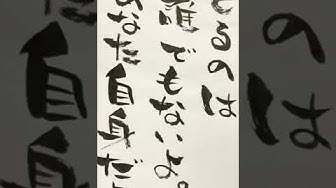 るのは
誰でもないよ。
あなた自身だ